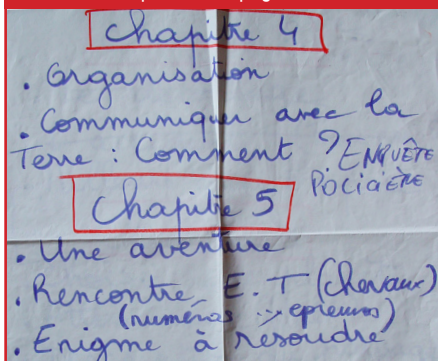 Chapitre 4
• Organisation
• Communiquer avec la
Terre : Comment ? ENQUÊTE
POLICIÈRE
Chapitre 5
• Une aventure
• Rencontre E.T (chevaux)
(numéros épreuves)
• Enigme à résoudre